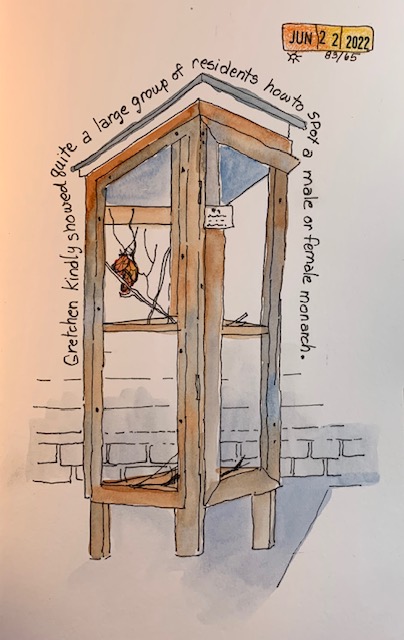 JUN 22 2022
83/65
Gretchen kindly showed quite a large group of residents how to spot a male or female monarch.